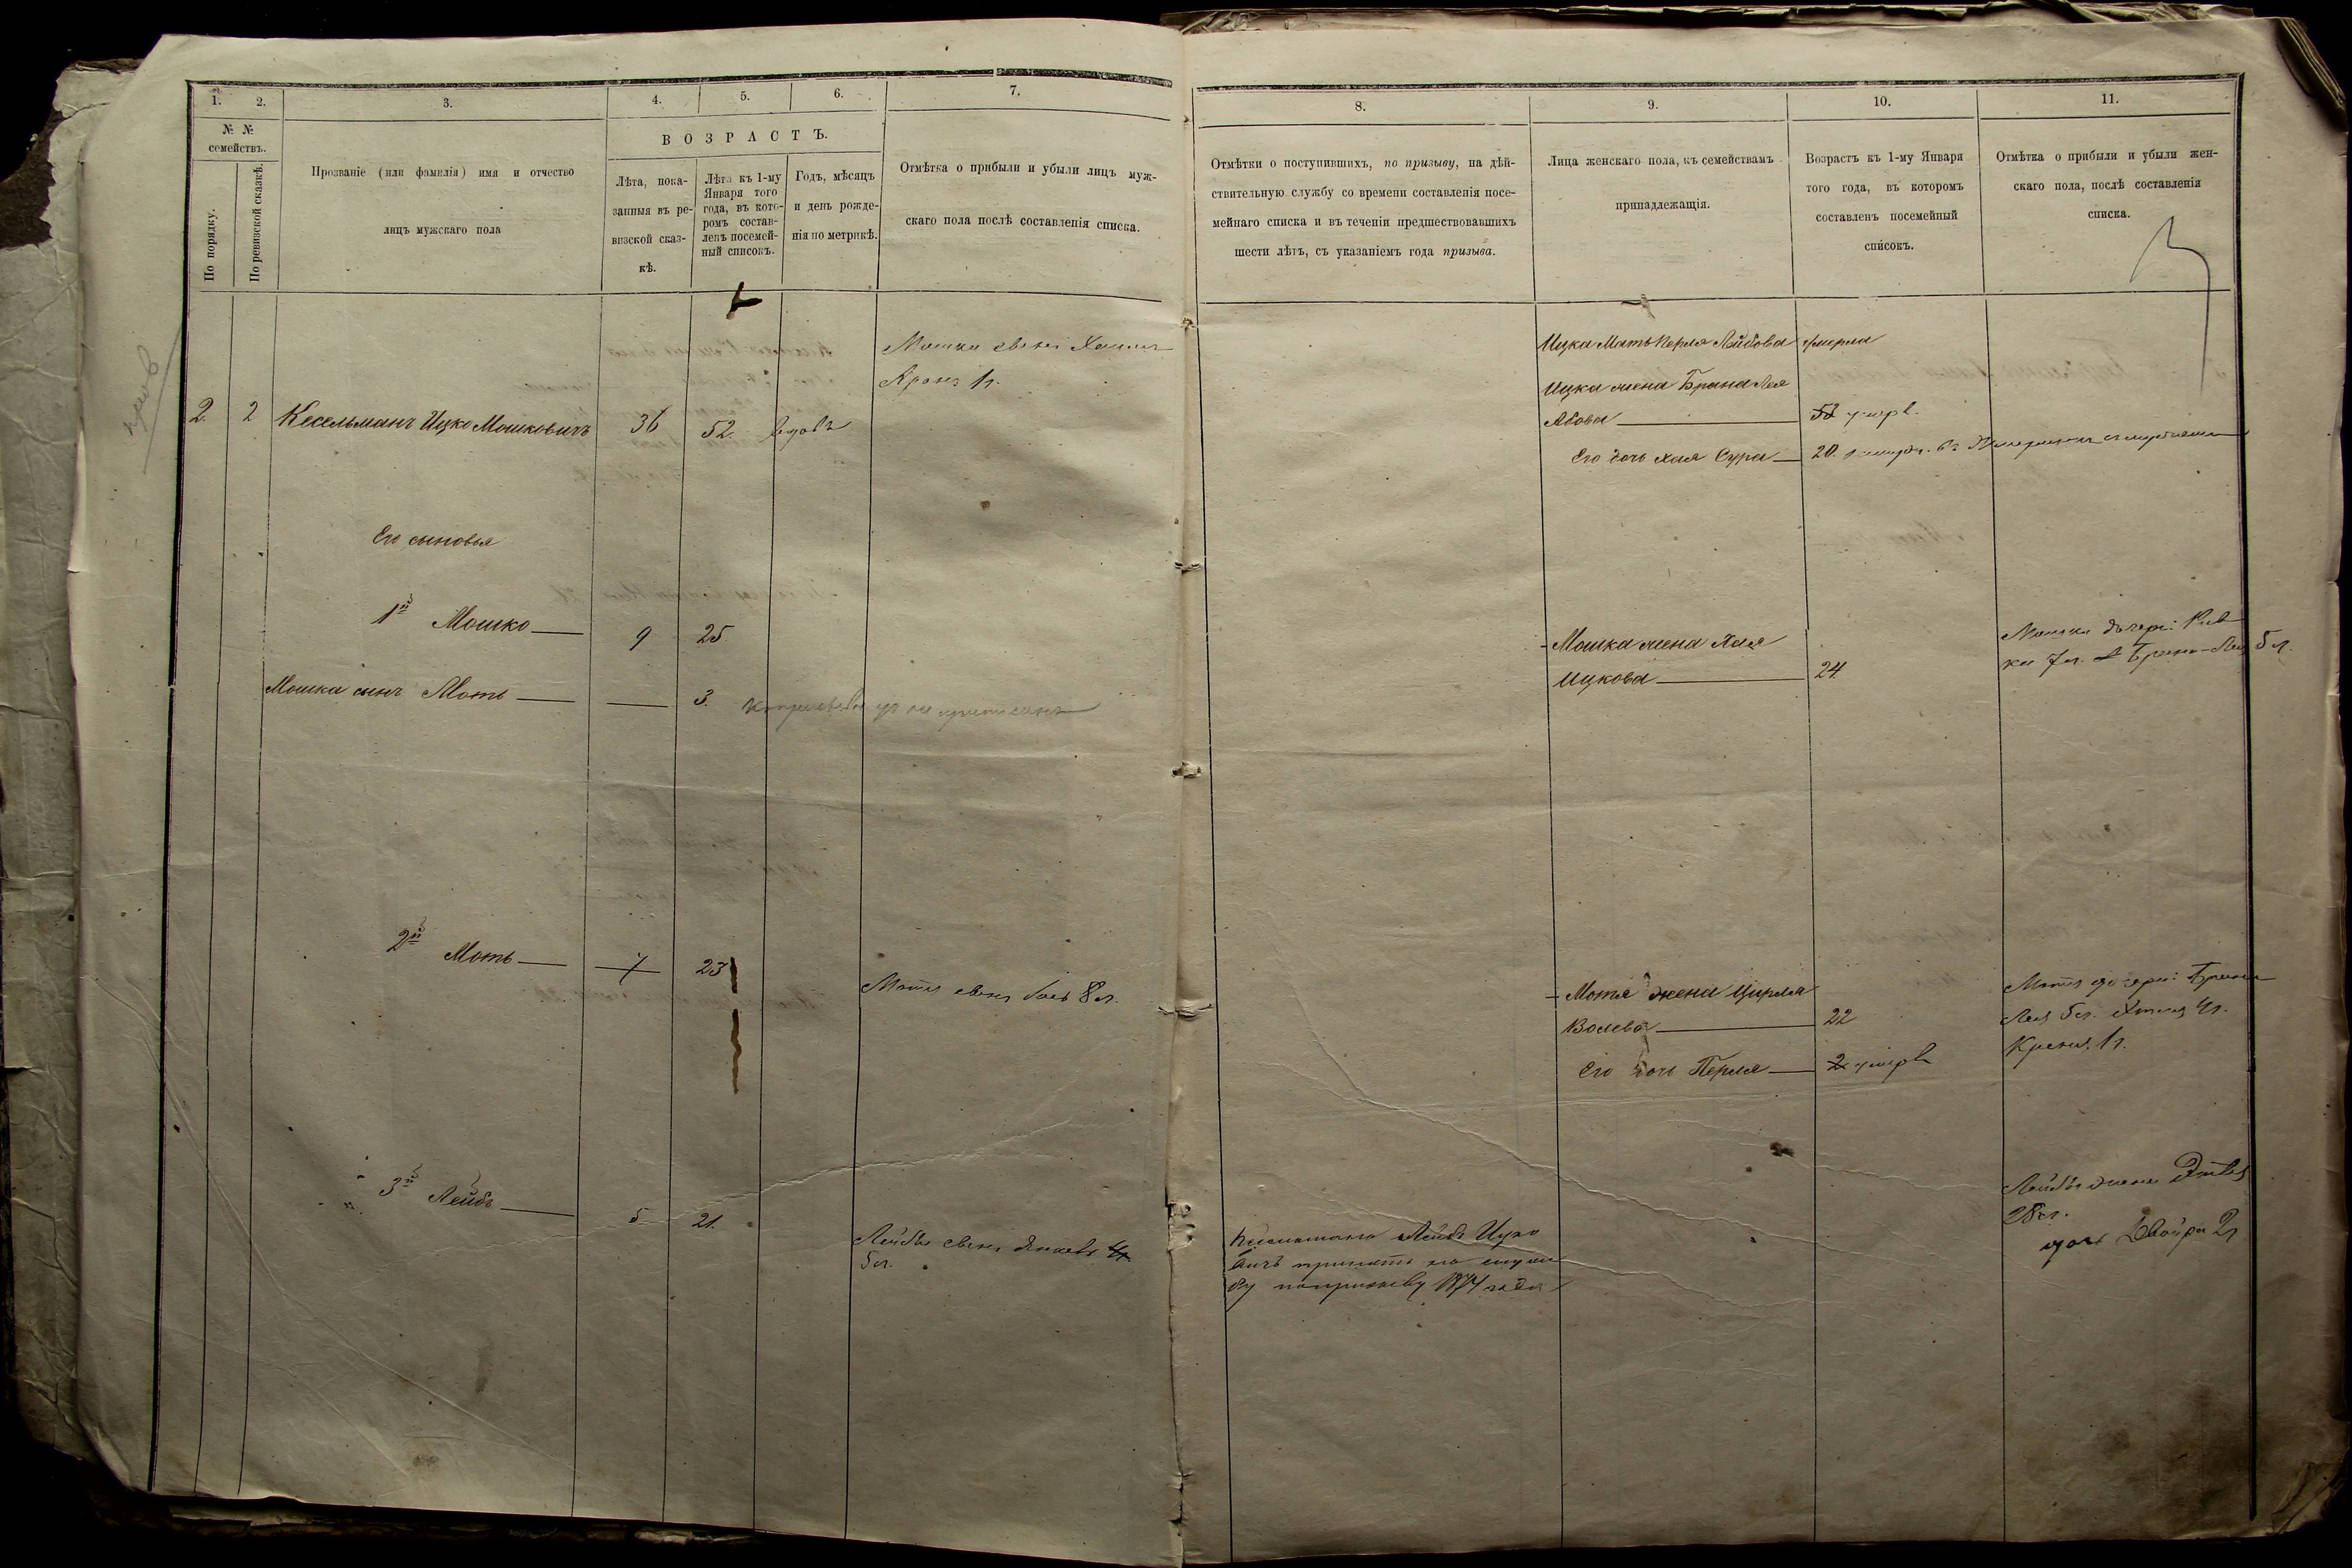 1.
2.
3.
4.
5.
6.
7.
№ №
семействъ.
По порядку.
По ревизской сказкѣ.
Прозваніе (или фамилія) имя и отчество
лицъ мужскаго пола
ВОЗРАСТЪ.
Лѣта, пока-
занныя въ ре-
визской сказ-
кѣ.
Лѣта къ 1-му
Января того
года, въ кото-
ромъ состав-
ленъ посемей-
ный списокъ.
Годъ, мѣсяцъ
и день рожде-
нія по метрикѣ.
Отмѣтка о прибыли и убыли лицъ муж-
скаго пола послѣ составленія списка.
Мошка сынъ
Аронъ 1 г.
2. 2 Кесельманъ Ицко Мошковичъ 36 52. вдовъ
Его сыновья
1й Мошко 9 25.
Мошка сынъ Моть 3.
2й Моть 7 23
Мотя сынъ 8 л.
3й Лейбъ 5 21.
Лейбы сынъ 4
5 л.
8.
9.
10.
11.
Отмѣтки о поступившихъ, по призыву, на дѣй-
ствительную службу со времени составленія посе-
мейнаго списка и въ теченіи предшествовавшихъ
шести лѣтъ, съ указаніемъ года призыва.
Лица женскаго пола, къ семействамъ
принадлежащія.
Возрастъ къ 1-му Января
того года, въ которомъ
составленъ посемейный
списокъ.
Отмѣтка о прибыли и убыли жен-
скаго пола, послѣ составленія
списка.
Ицка Мать Перля Лейбова умерла
Ицка жена Брана Лея
Абова 52 умерл.
Его дочь Хая Сура 20.
Мошка жена Хая
Ицкова 24
Мошки дочери: Рив-
ка 7 л. Брана-Лея 5 л.
Мотя жена Цирля
Волева 22
Его дочь Перля 2 умерла
Мотя дочери: Брана
Лея 5 л. 4 г.
1 г.
Кесельманъ Лейбъ Ицко
вичъ принятъ на служ
бу по призыву 1874 года
Лейбы жена
28 л.
дочь Двойра 2 г